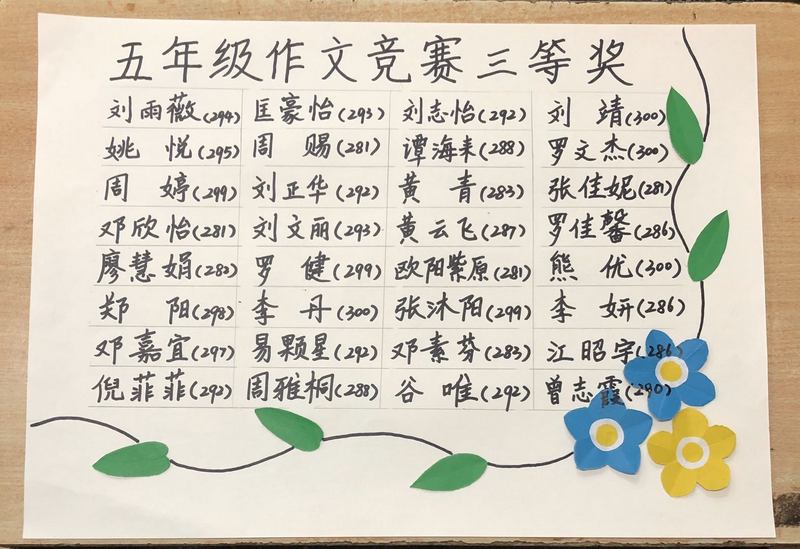 五年级作文竞赛三等奖
刘雨薇(294) 匡豪怡(293) 刘志怡(292) 刘靖(300)
姚悦(295) 周赐(281) 谭海来(288) 罗文杰(300)
周婷(299) 刘正华(292) 黄青(283) 张佳妮(281)
邓欣怡(281) 刘文丽(293) 黄云飞(287) 罗佳馨(286)
廖慧娟(282) 罗健(299) 欧阳紫原(281) 熊优(300)
郑阳(298) 李丹(300) 张沐阳(299) 李妍(286)
邓嘉宜(297) 易颗星(292) 邓素芬(283) 江昭宇(286)
倪菲菲(292) 周雅桐(288) 谷唯(292) 曾志霞(290)